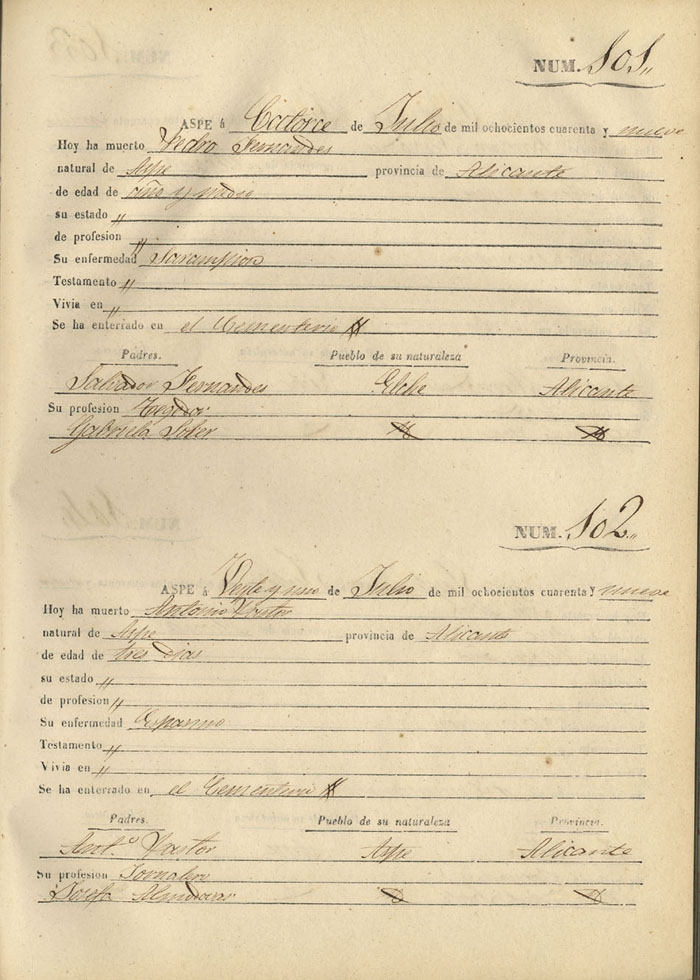 NUM. 101.,
ASPE á Catorce de Julio de mil ochocientos cuarenta y nueve
Hoy ha muerto Pedro Fernandes
natural de Aspe provincia de Alicante
de edad de año y medio
su estado "
de profesion "
Su enfermedad Sarampion
Testamento "
Vivia en "
Se ha enterrado en el Cementerio
Padres. Pueblo de su naturaleza Provincia.
Salvador Fernandes Elche Alicante
Su profesion Tegedor
Gabriela Soler
NUM. 102.,
ASPE á Veyte y uno de Julio de mil ochocientos cuarenta y nueve
Hoy ha muerto Antonio Pastor
natural de Aspe provincia de Alicante
de edad de tres dias
su estado "
de profesion "
Su enfermedad Espasmo
Testamento "
Vivia en "
Se ha enterrado en el Cementerio
Padres. Pueblo de su naturaleza Provincia.
Ant.º Pastor Aspe Alicante
Su profesion Jornalero
Josefa Almodovar